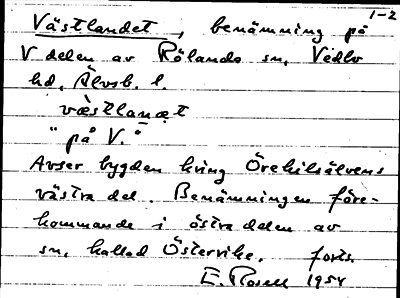 1-2
Västlandet, benämning på
V delen av Rölanda sn, Vedbo
hd, Älvsb. l.
vä̀stlanət
"på V."
Avser bygden kring Örekilsälvens
västra del. Benämningen före-
kommande i östra delen av
sn, kallad Österrike. forts.
E. Rosell 1954